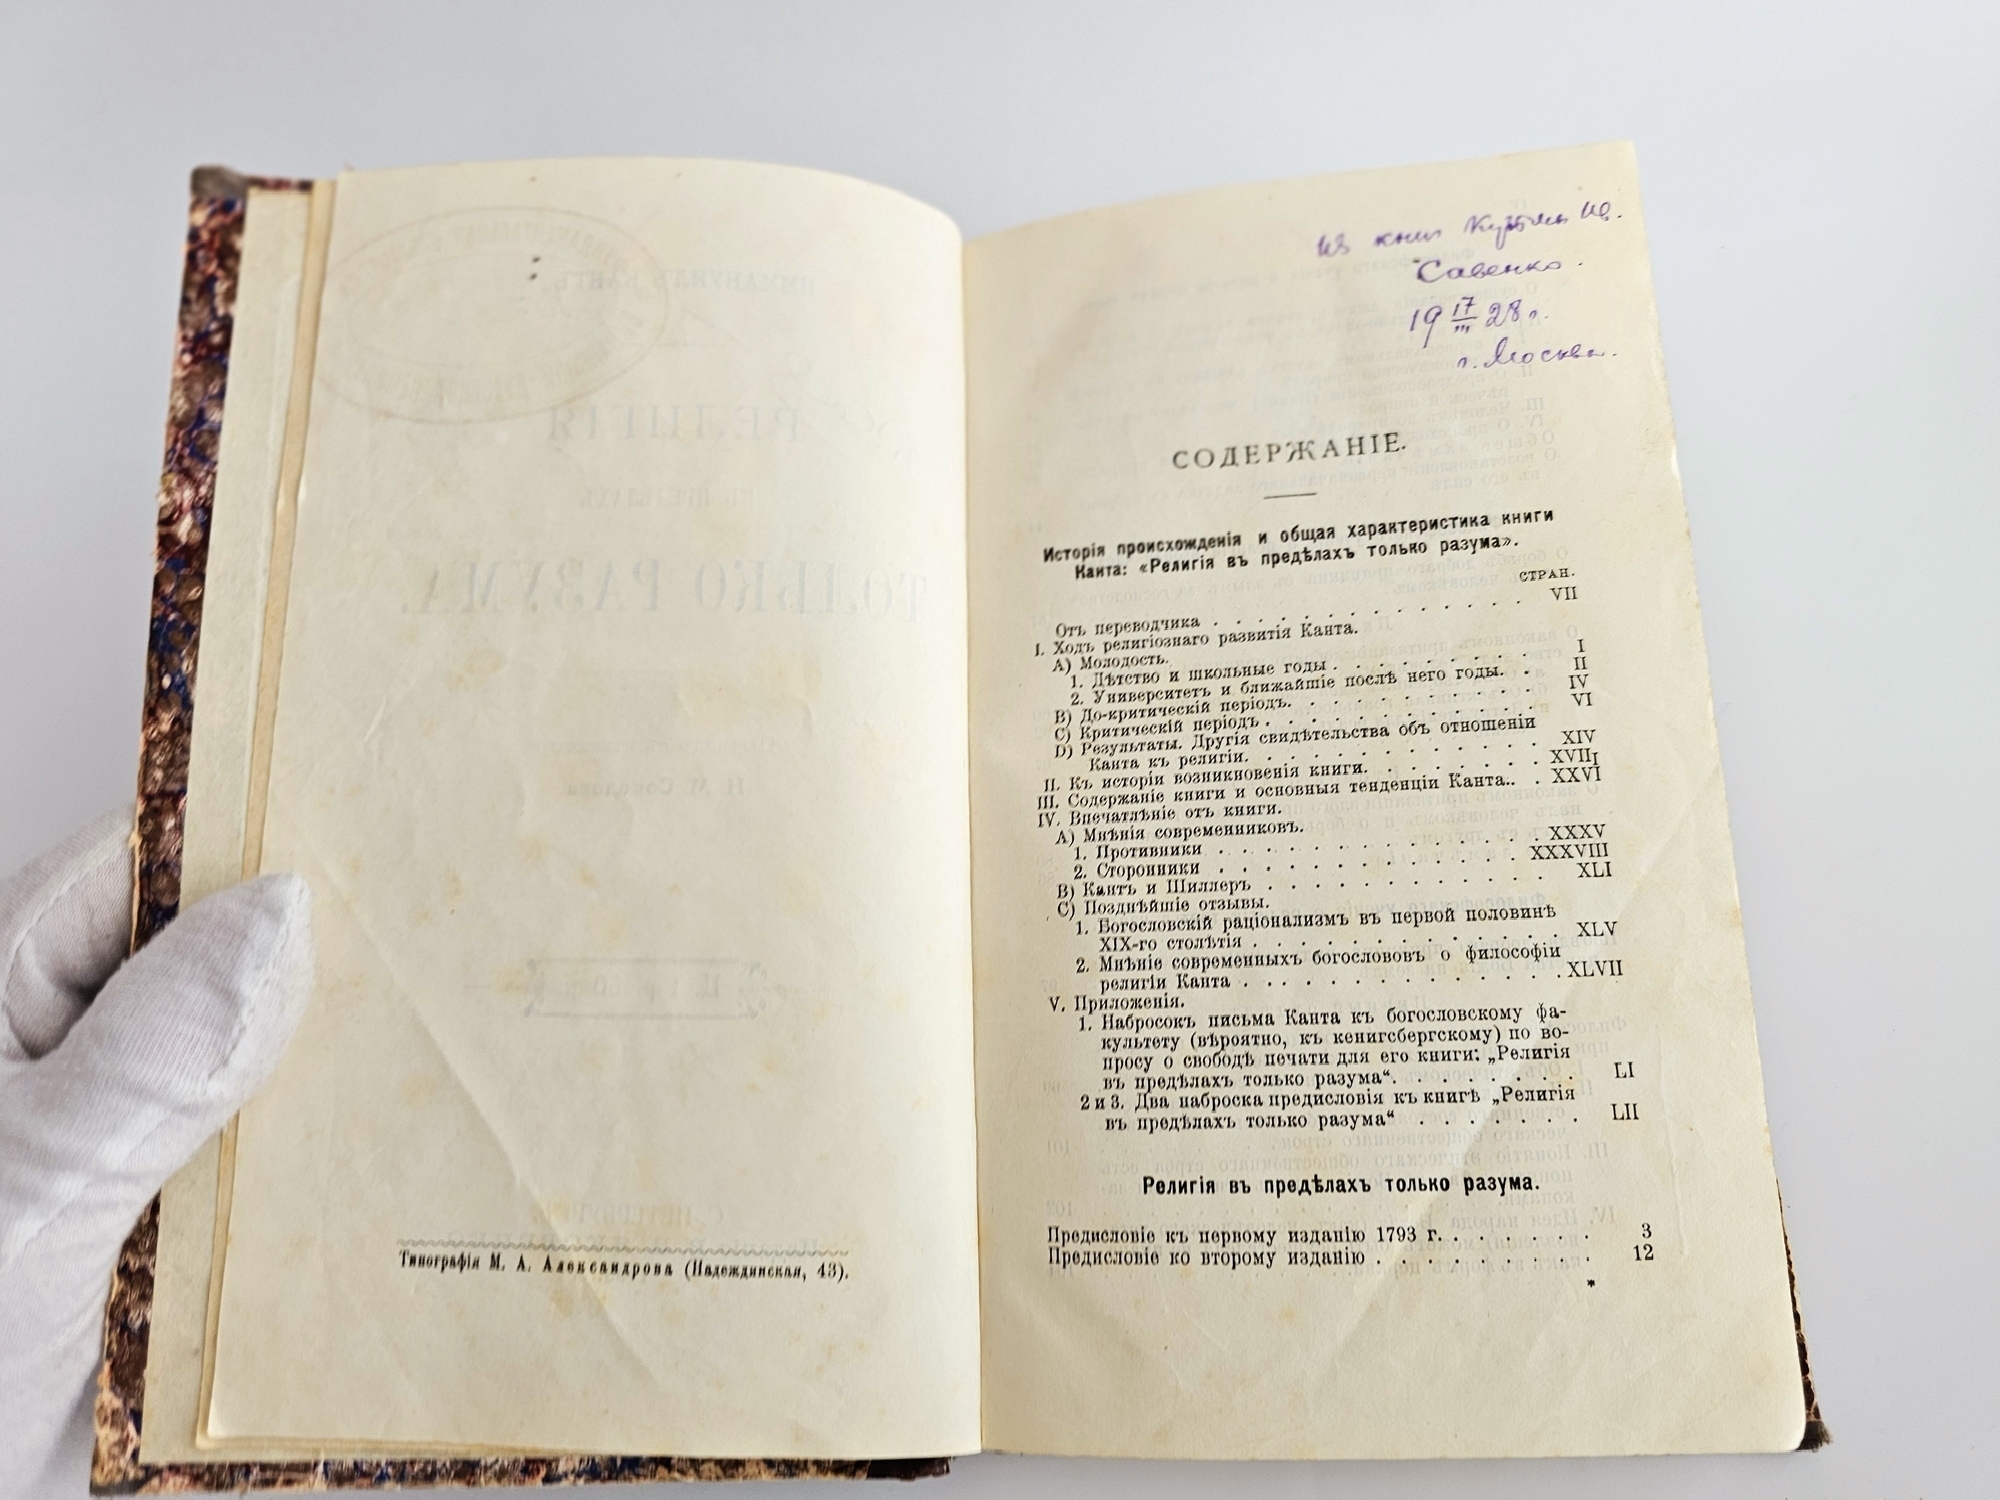 Типографія М. А. Александрова (Надеждинская, 43).
из книг Кузьмы Ив.
Савенко.
19 17/III 28 г.
г. Москва.
СОДЕРЖАНІЕ.
Исторія происхожденія и общая характеристика книги
Канта: «Религія въ предѣлахъ только разума».
СТРАН.
Отъ переводчика . . . . . . . . . . . . . VII
I. Ходъ религіознаго развитія Канта.
А) Молодость.
1. Дѣтство и школьные годы . . . . . . . . I
2. Университетъ и ближайшіе послѣ него годы. . II
В) До-критическій періодъ. . . . . . . . . . IV
С) Критическій періодъ . . . . . . . . . . . VI
D) Результаты. Другія свидѣтельства объ отношеніи
Канта къ религіи. . . . . . . . . . . . XIV
II. Къ исторіи возникновенія книги. . . . . . . . XVIII
III. Содержаніе книги и основныя тенденціи Канта.. . XXVI
IV. Впечатлѣніе отъ книги.
А) Мнѣнія современниковъ.
1. Противники . . . . . . . . . . . . . XXXV
2. Сторонники . . . . . . . . . . . . . XXXVIII
В) Кантъ и Шиллеръ . . . . . . . . . . . . XLI
С) Позднѣйшіе отзывы.
1. Богословскій раціонализмъ въ первой половинѣ
XIX-го столѣтія . . . . . . . . . . . . XLV
2. Мнѣніе современныхъ богослововъ о философіи
религіи Канта . . . . . . . . . . . . . XLVII
V. Приложенія.
1. Набросокъ письма Канта къ богословскому фа-
культету (вѣроятно, къ кенигсбергскому) по во-
просу о свободѣ печати для его книги: „Религія
въ предѣлахъ только разума“. . . . . . . . LI
2 и 3. Два наброска предисловія къ книгѣ „Религія
въ предѣлахъ только разума“ . . . . . . . LII
Религія въ предѣлахъ только разума.
Предисловіе къ первому изданію 1793 г. . . . . . . 3
Предисловіе ко второму изданію . . . . . . . . . 12
*